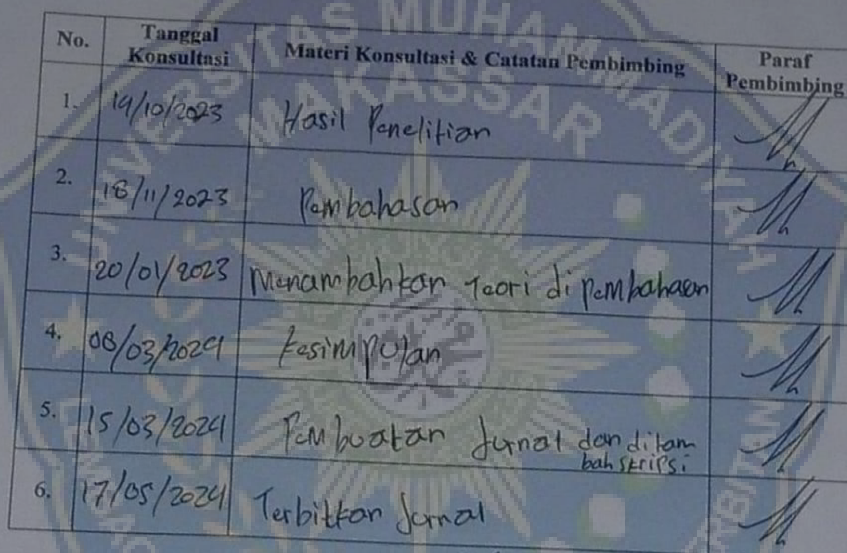 No. Tanggal Konsultasi Materi Konsultasi & Catatan Pembimbing Paraf Pembimbing
1. 19/10/2023 Hasil Penelitian
2. 18/11/2023 Pembahasan
3. 20/01/2023 Menambahkan Teori di pembahasan
4. 08/03/2024 Kesimpulan
5. 15/03/2024 Pembuatan Jurnal dan ditam
bah skripsi
6. 17/05/2024 Terbitkan Jurnal
UNIVERSITAS MUHAMMADIYAH
MAKASSAR